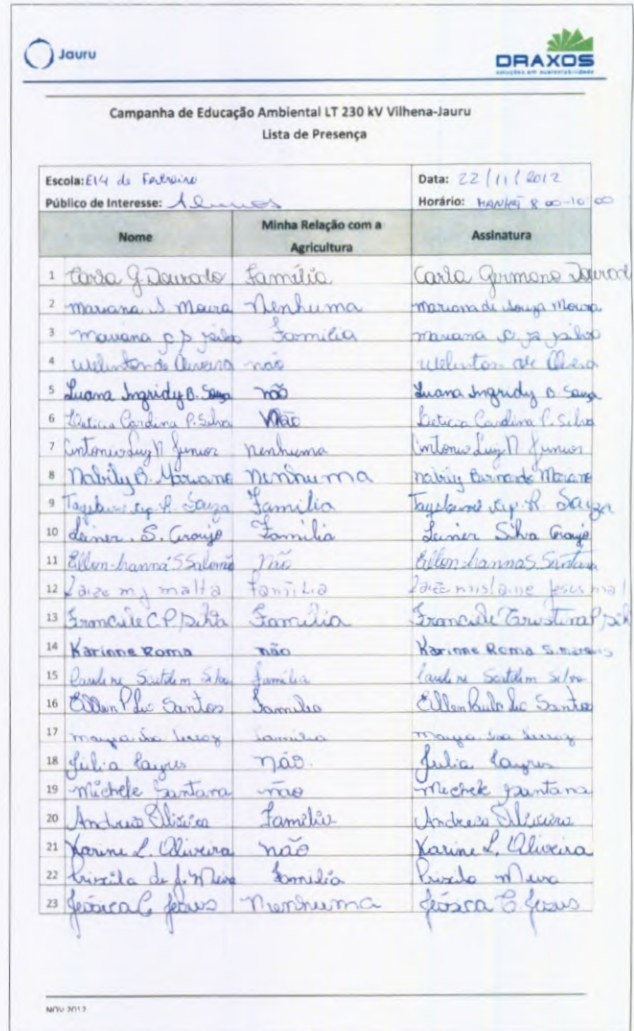 Jauru
DRAXOS
soluções em sustentabilidade
Campanha de Educação Ambiental LT 230 kV Vilhena-Jauru
Lista de Presença
Escola: E14 de Fevereiro Data: 22/11/2012
Público de Interesse: Alunos Horário: MANHÃ 8 00-10 00
Nome Minha Relação com a Agricultura Assinatura
1 Carla G Dourado Família Carla Germano Dourado
2 Mariana S Moura Nenhuma Mariana de Souza Moura
3 Mariana p p Família mariana
4 Welinton de Oliveira não Welinton de
5 Luana Ingridy B. Souza não Luana Ingridy B Souza
6 Leticia Carolina P. Silva Não Leticia Carolina P. Silva
7 Antonio Luiz N Junior nenhuma Antonio Luiz N Junior
8 Nabily B. Mariano Nenhuma Nabily Bernardo Mariano
9 R. Souza Família R. Souza
10 Leiner S. Araujo Família Leiner Silva Araujo
11 Ellen não Ellen Santana
12 Laize m j malta família Laize jesus mal
13 Franciele C P Silva Família Franciele
14 Karinne Roma não Karinne Roma
15 Silva família Silva
16 Ellen Santos Família Ellen Santos
17 família
18 Julia Layus não. Julia Layus
19 Michele Santana não Michele Santana
20 Andreia Oliveira Família Andreia Oliveira
21 Karine L. Oliveira não Karine L. Oliveira
22 Priscila de J. Família Priscila
23 Jéssica C Jesus Nenhuma Jéssica C Jesus
NOV-2012